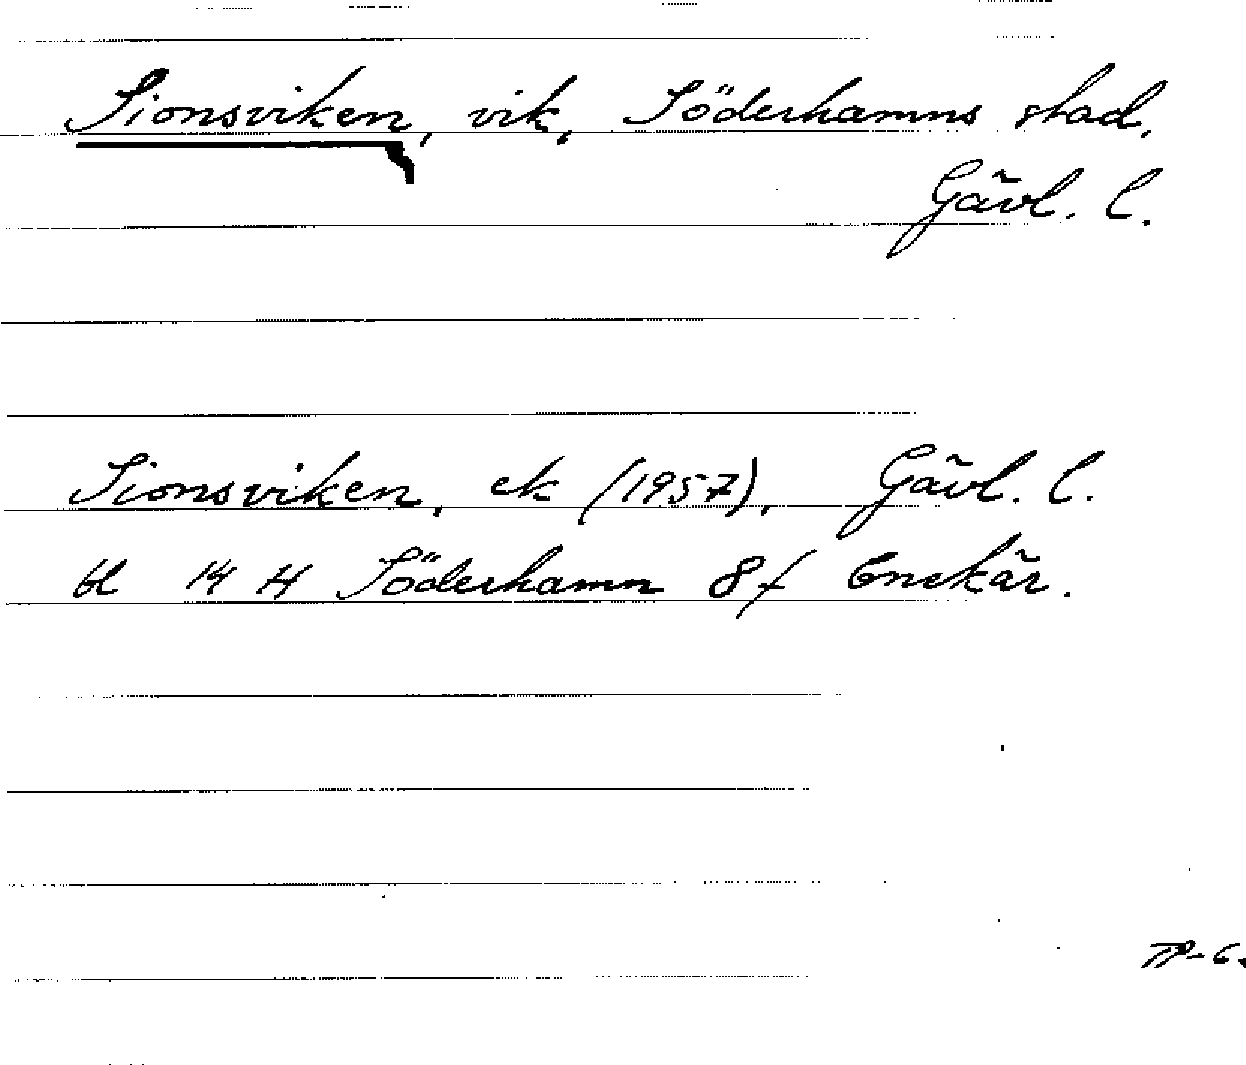 Sionsviken, vik, Söderhamns stad,
Gävl. l.
Sionsviken, ek (1957), Gävl. l.
bl 14 H Söderhamn 8 f Enekär.